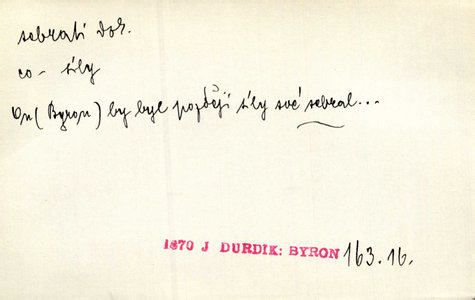 sebrati dok.
co - síly
On (Byron) by byl později síly své sebral...
1870 J DURDIK: BYRON 163.16.